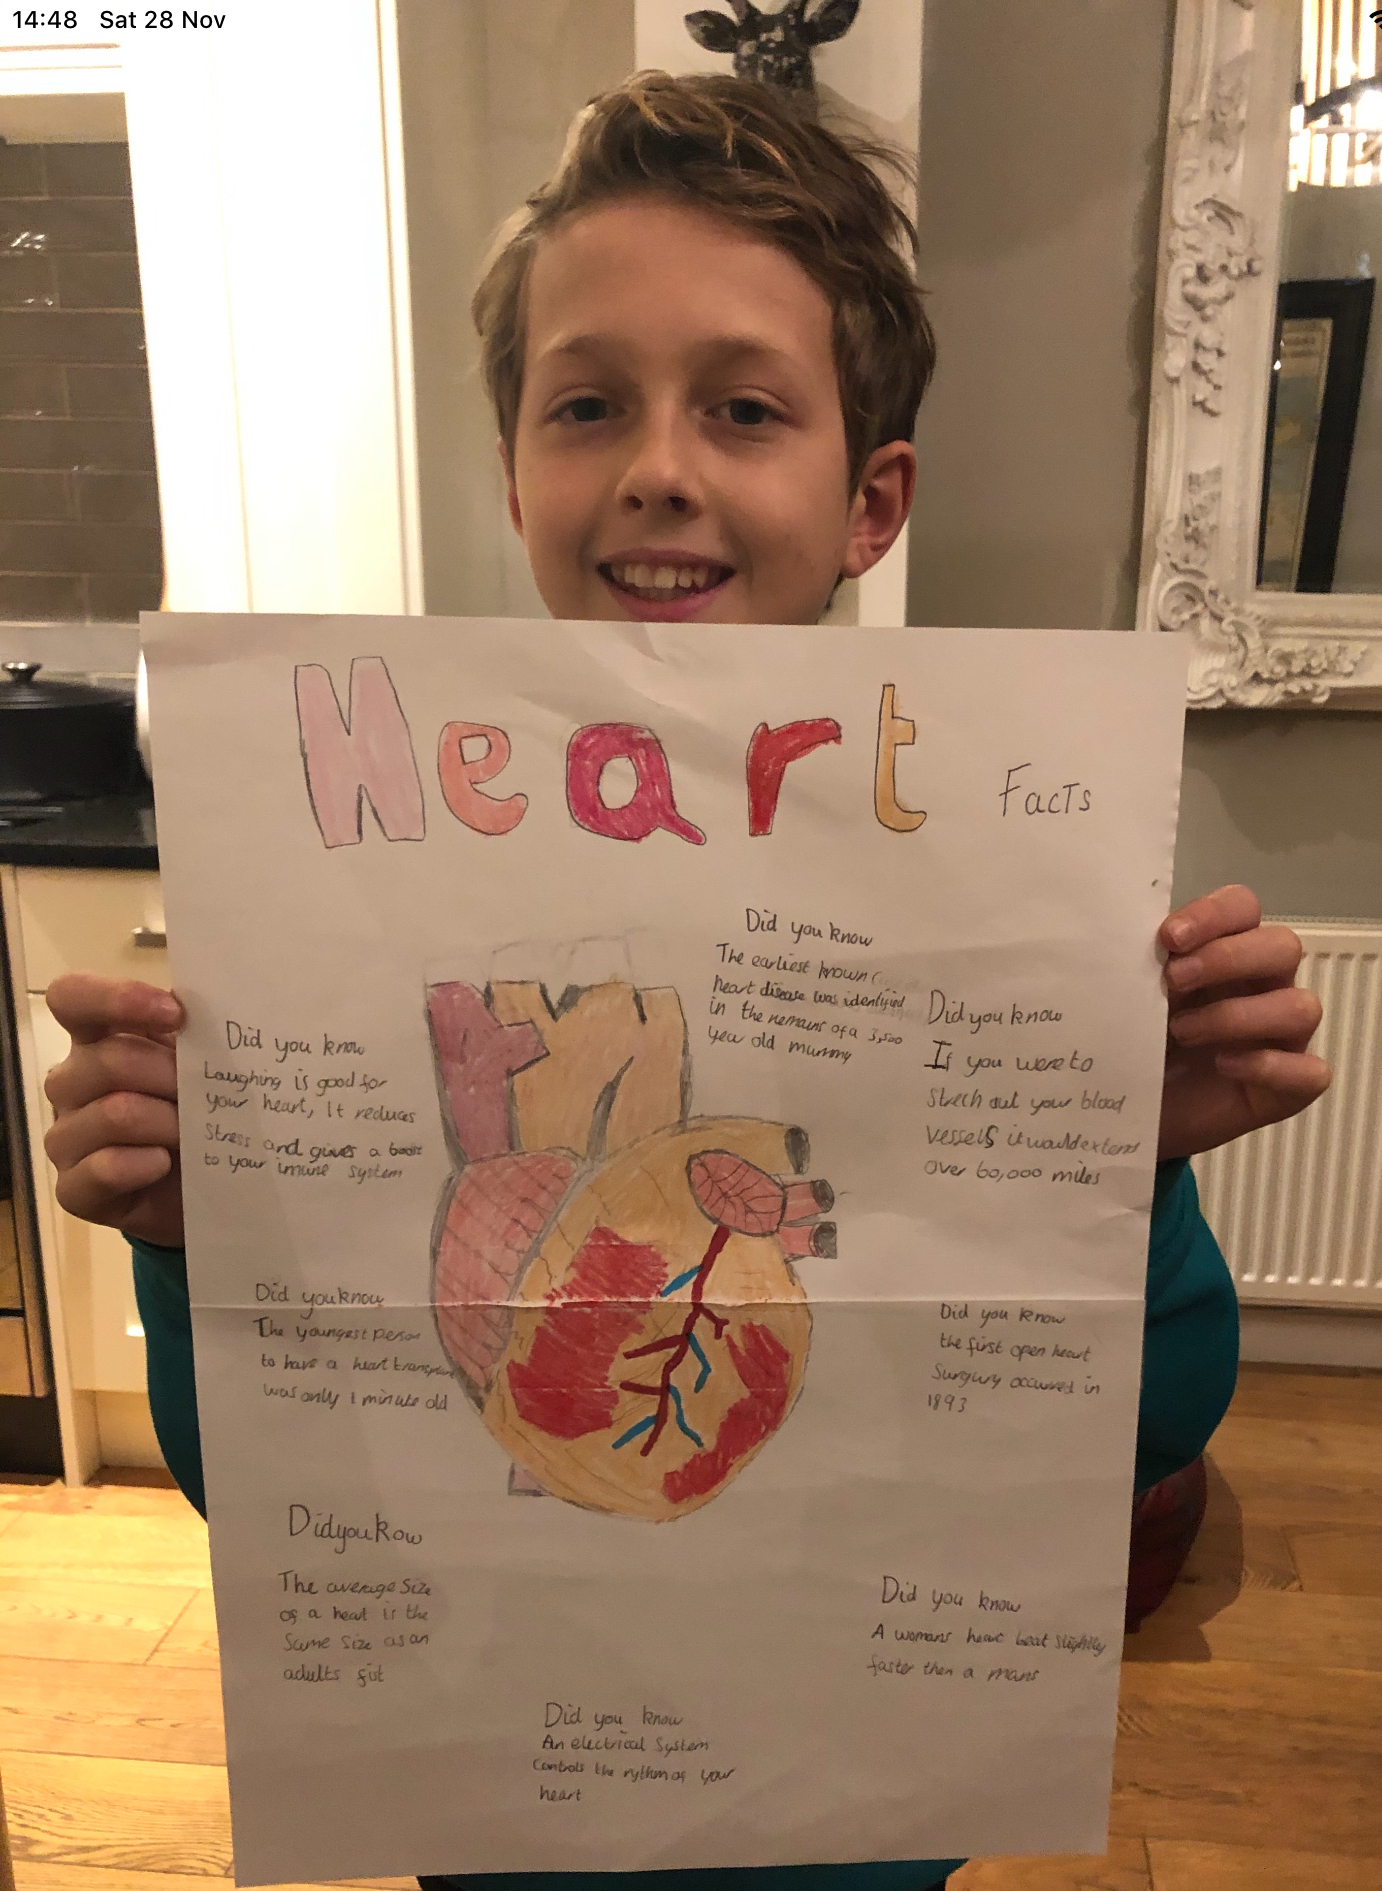 14:48 Sat 28 Nov
Heart Facts
Did you know
The earliest known
heart disease was identified
in the remains of a 3,500
year old mummy
Did you know
If you were to
strech out your blood
vessels it would extend
over 60,000 miles
Did you know
Laughing is good for
your heart, It reduces
Stress and gives a boost
to your imune system
Did you know
The youngest person
to have a heart transplant
was only 1 minute old
Did you know
the first open heart
Surgury occurred in
1893
Did you kow
The average Size
of a heart is the
Same size as an
adults fist
Did you know
A womans heart beat slightly
faster then a mans
Did you know
An electrical System
Controls the rythm of your
heart